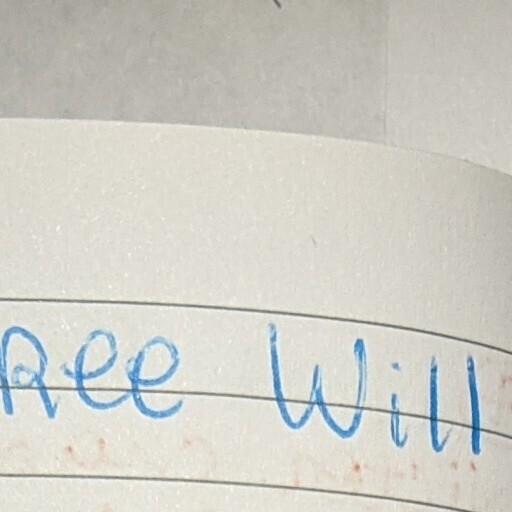 Ree Will